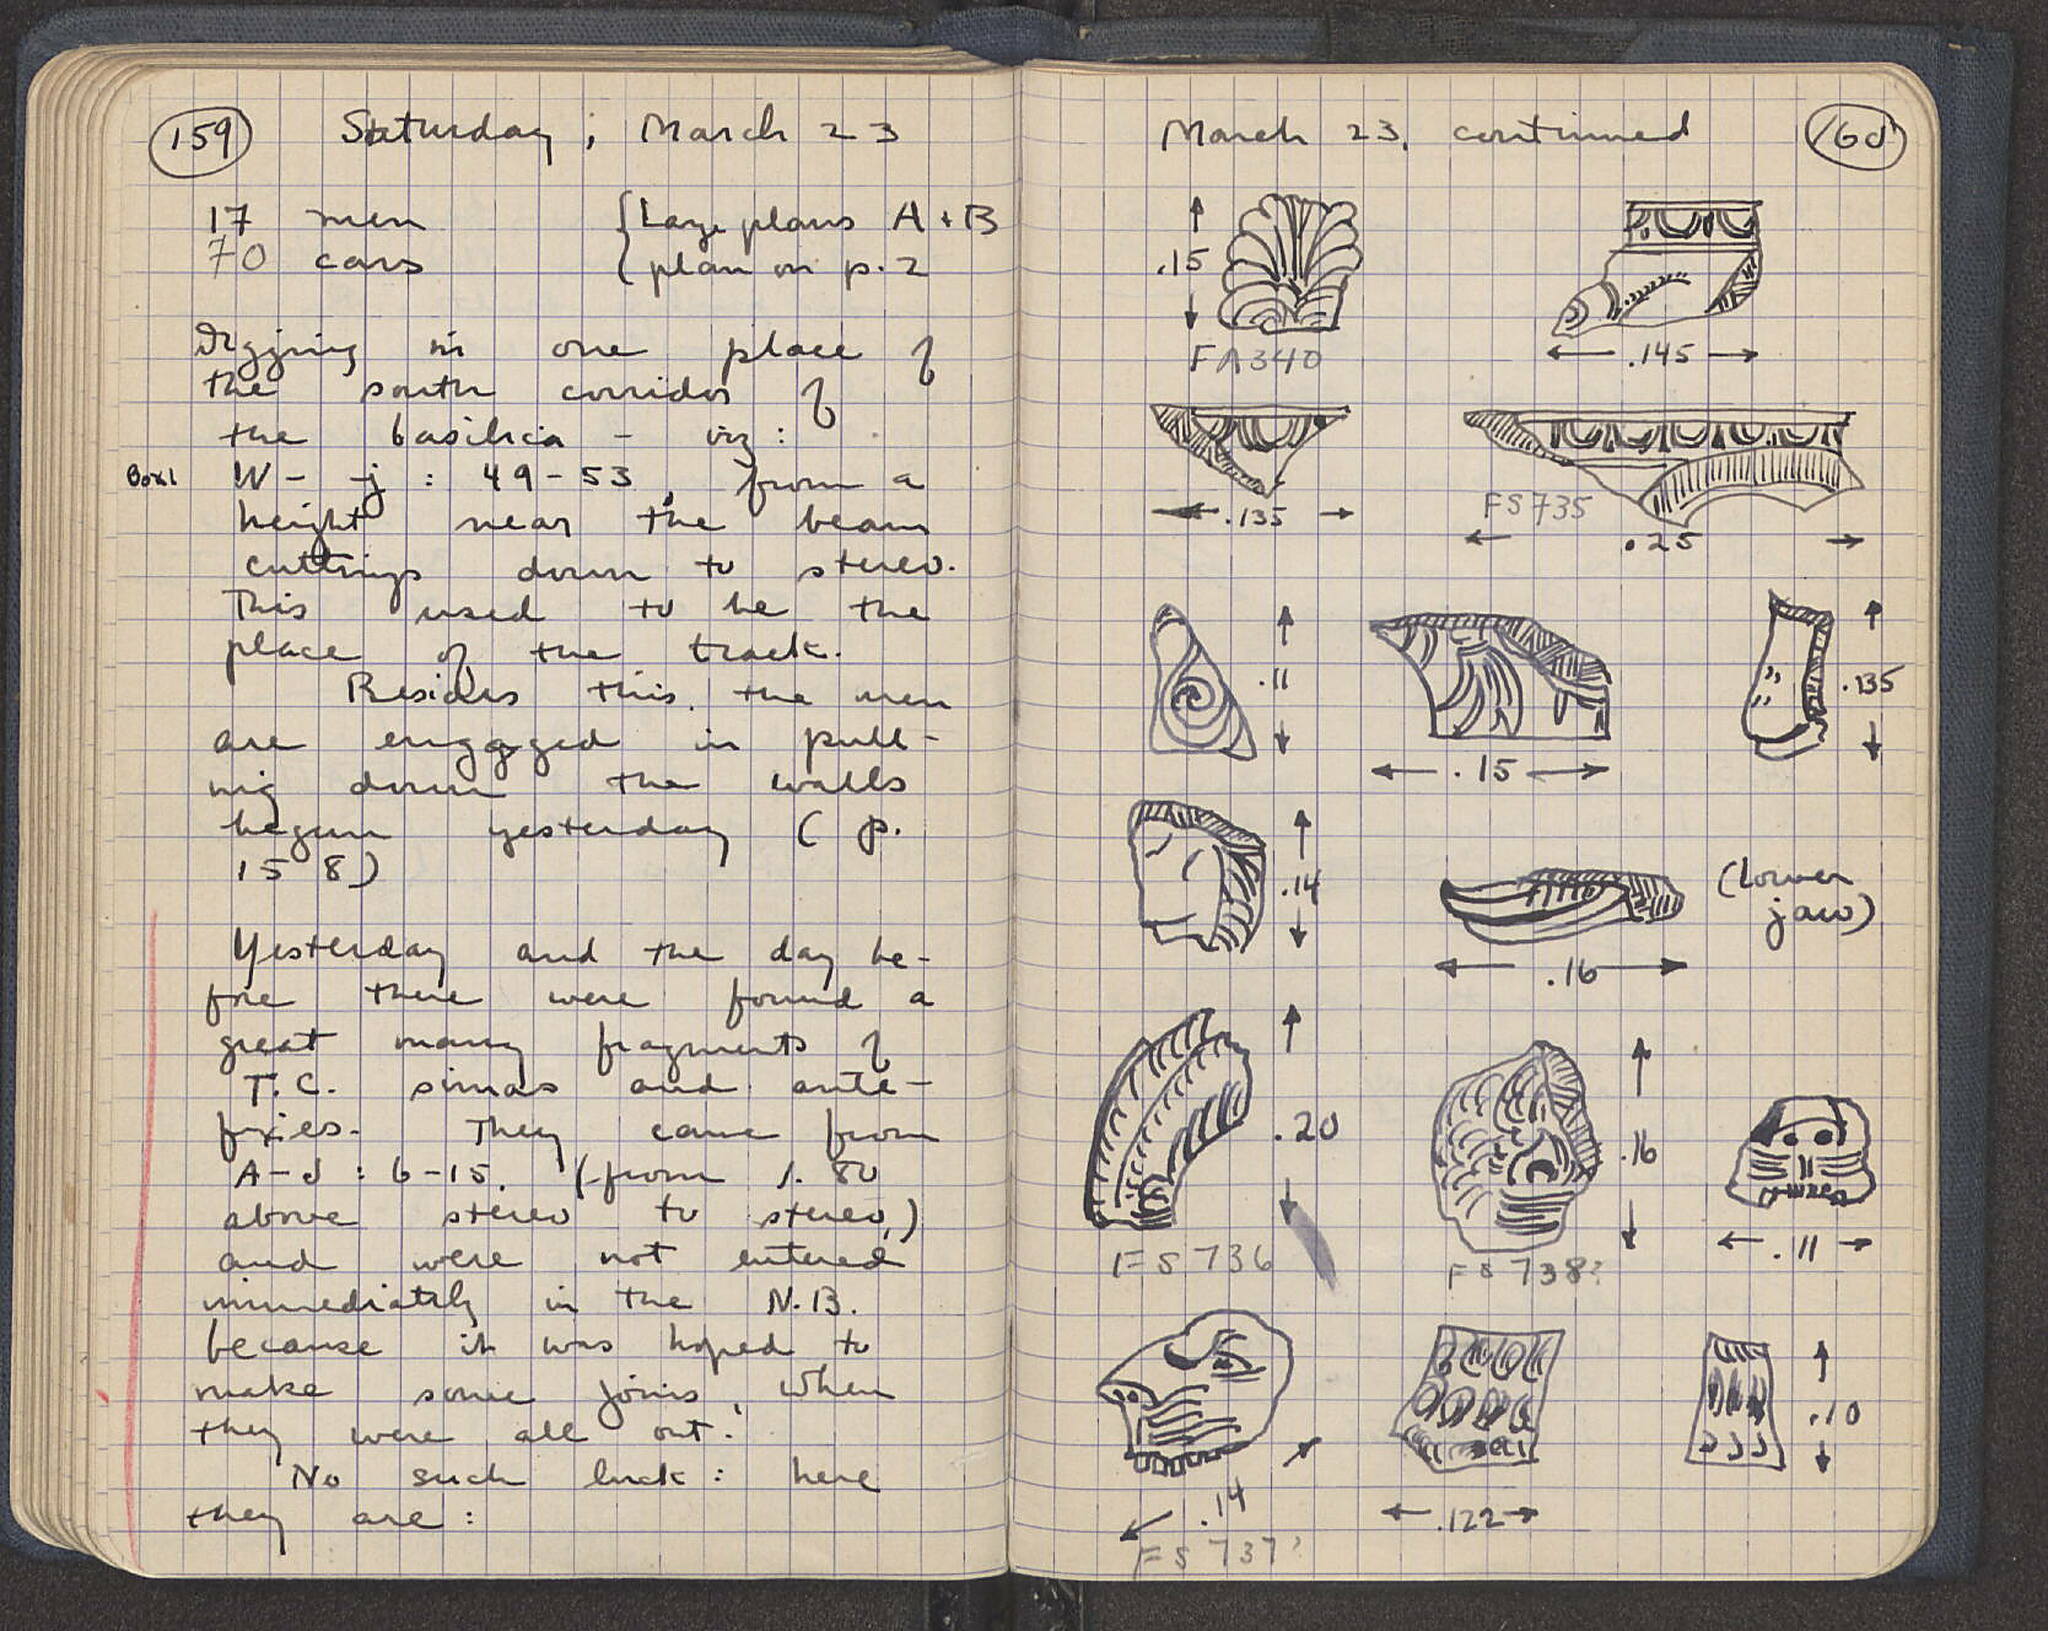 159
Saturday, March 23
17 men
70 cars
{Large plans A + B
plan on p. 2
Digging in one place of
the south corridor of
the basilica - viz:
Box 1
W - j : 49-53, from a
height near the beam
cuttings down to stereo.
This used to be the
place of the track.
Besides this, the men
are engaged in pull-
ing down the walls
begun yesterday (p.
158)
Yesterday and the day be-
fore there were found a
great many fragments of
T.C. simas and ante-
fixes. They came from
A-J : 6-15. (from 1.80
above stereo to stereo,)
and were not entered
immediately in the N.B.
because it was hoped to
make some joins when
they were all out.
No such luck: here
they are:
March 23, continued
160
.15
FA340
.145
.135
FS735
.25
.11
.15
.135
.14
.16
(lower
jaw)
.20
FS736
.16
FS738?
.11
.14
FS737?
.122
.10